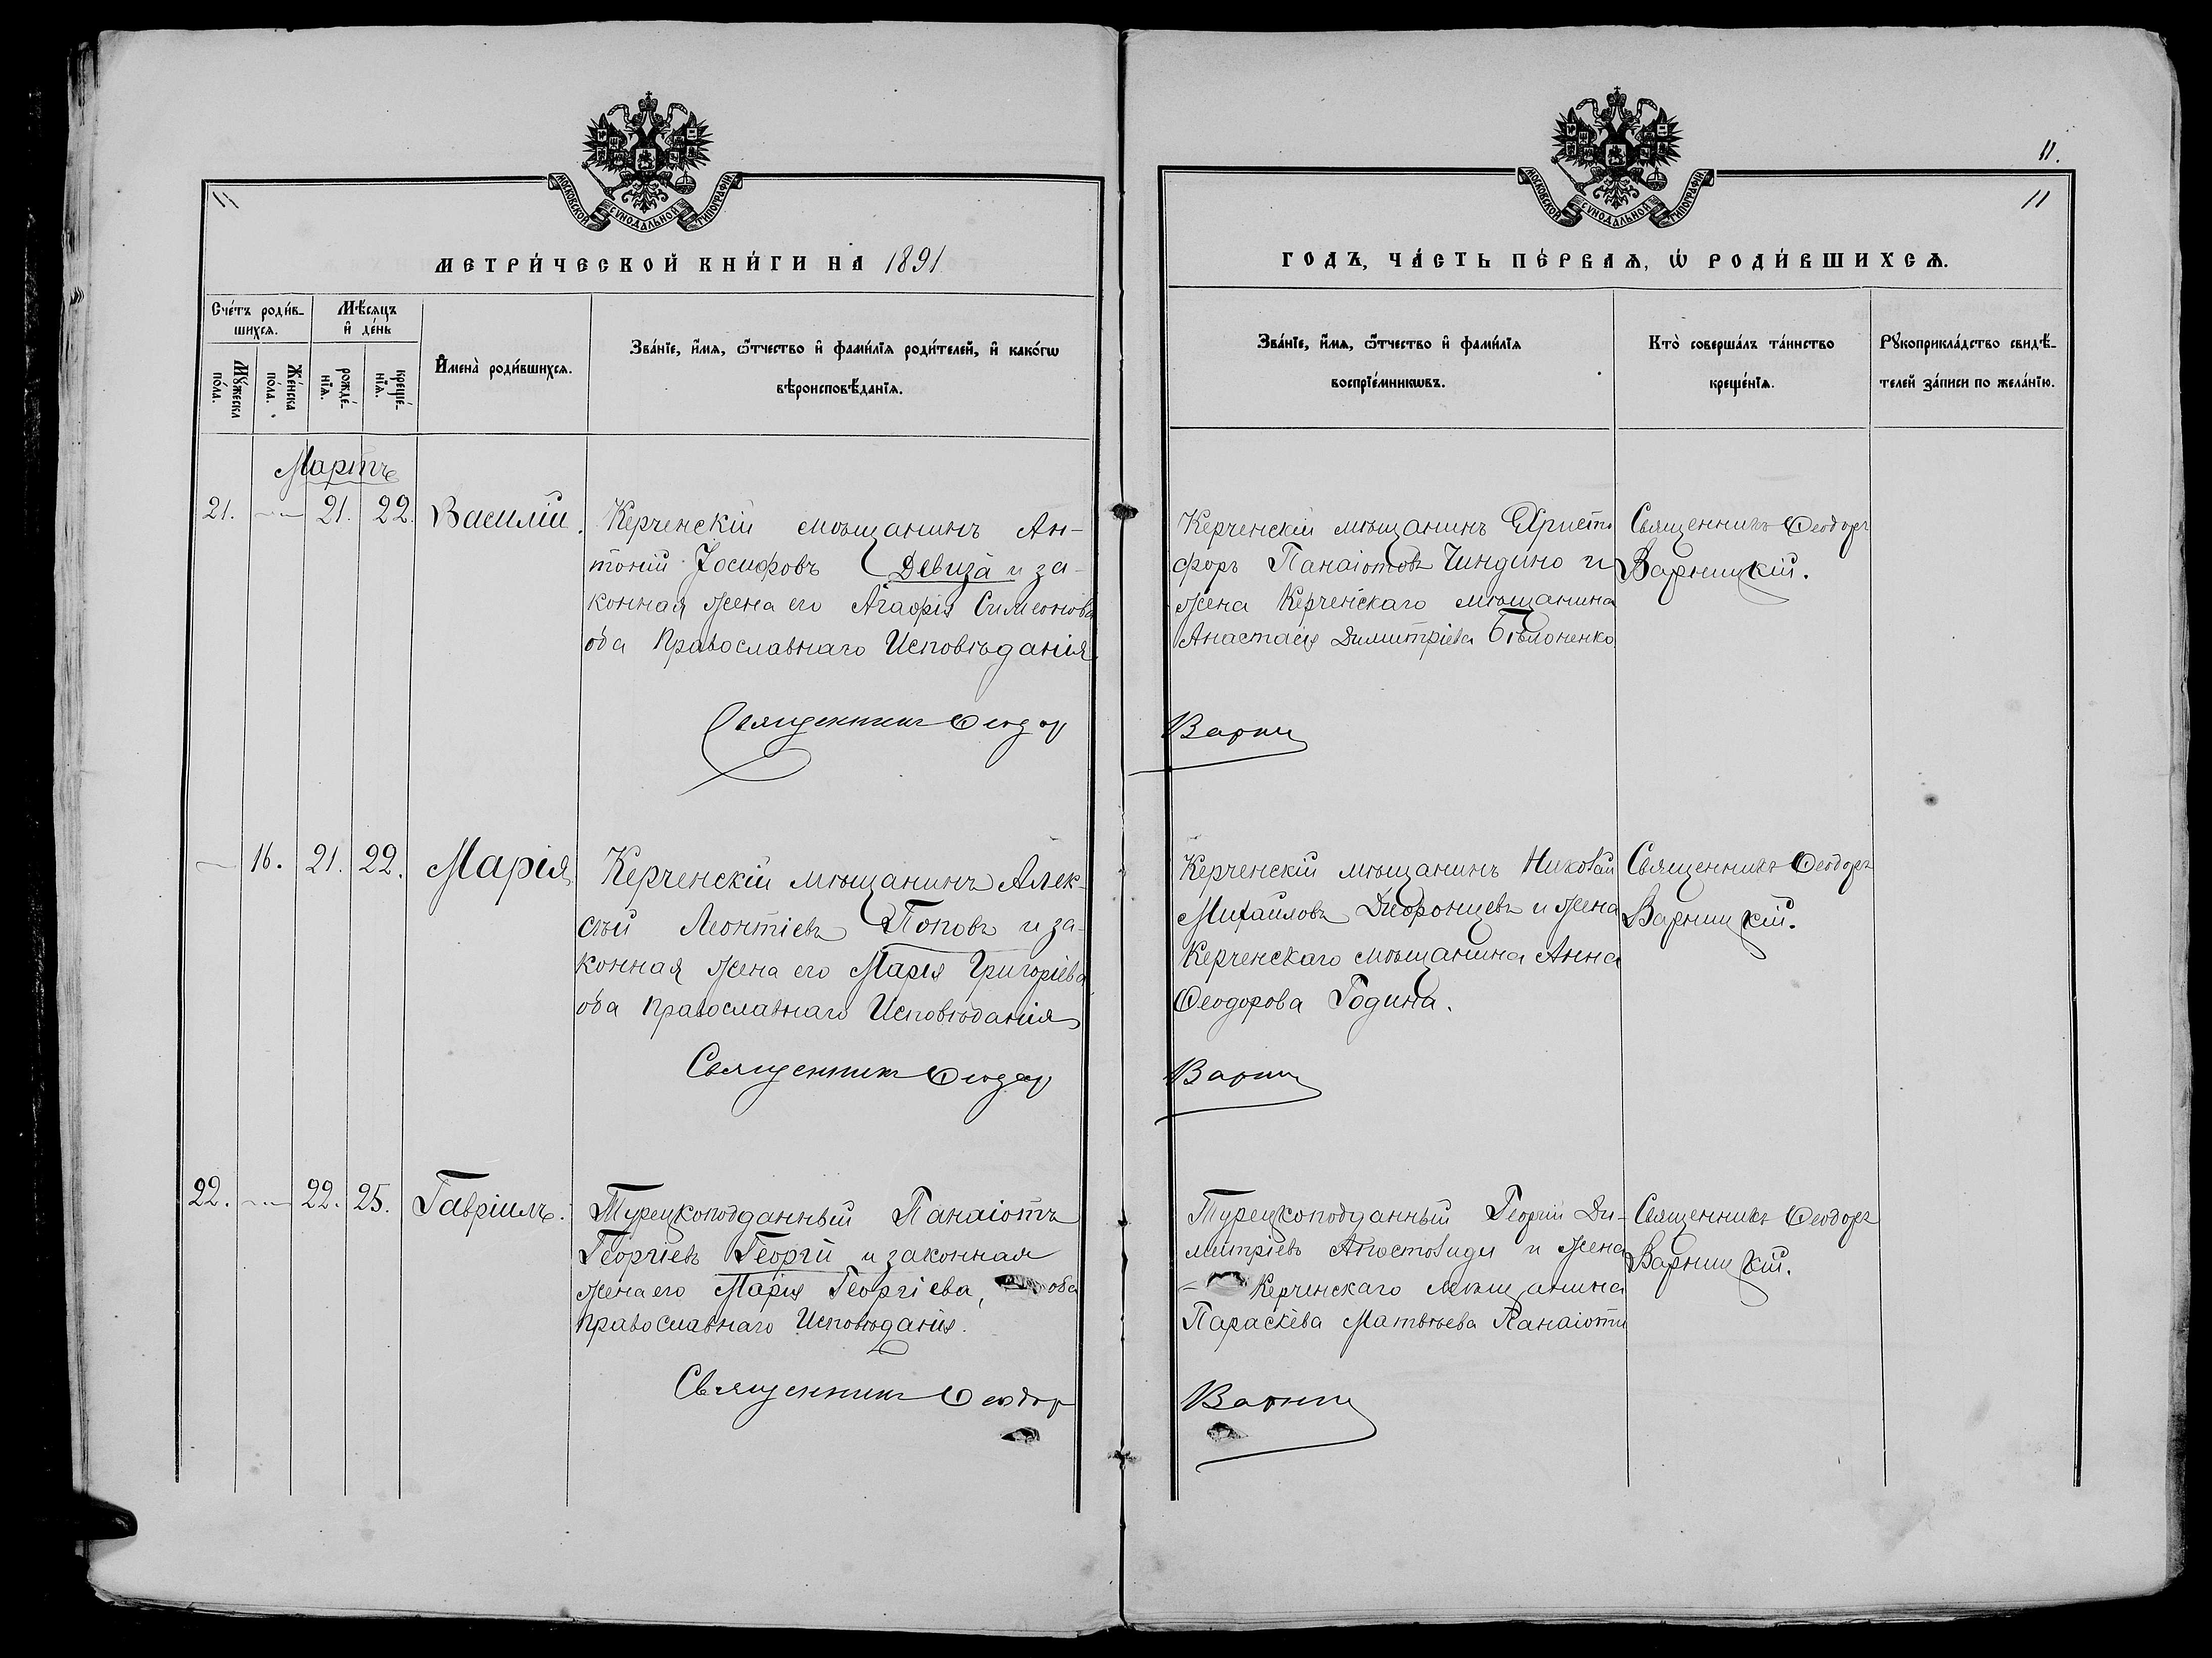 МОСКОВСКОЙ СѴНОДАЛЬНОЙ ТИПОГРАФІИ
11
МЕТРИ́ЧЕСКОЙ КНИ́ГИ НА 1891
Сче́тъ роди́в-
шихсѧ.
Мѣ́сѧцъ
и҆ де́нь
Мꙋ́жеска
по́ла.
Же́нска
по́ла.
рожде́-
нїѧ.
креще́-
нїѧ.
И҆мена̀ роди́вшихсѧ.
Зва́нїе, и҆́мѧ, ѻ҆́тчество и҆ фами́лїѧ роди́телей, и҆ како́гѡ
вѣроисповѣ́данїѧ.
Мартъ
21. — 21. 22. Василій.
Керченскій мѣщанинъ Ан-
тоній Іосифовъ Девиза и за-
конная жена его Агафія Симеонова
оба Православнаго Исповѣданія.
Священникъ Ѳеодор
— 16. 21. 22. Марія
Керченскій мѣщанинъ Алек-
сѣй Леонтіевъ Поповъ и за-
конная жена его Марія Григоріева
оба Православнаго Исповѣданія
Священникъ Ѳеодор
22. — 22. 25. Гавріилъ.
Турецкоподданный Панаіотъ
Георгіевъ Георгій и законная
жена его Марія Георгіева, оба
Православнаго Исповѣданія.
Священникъ Ѳеодор
11.
МОСКОВСКОЙ СѴНОДАЛЬНОЙ ТИПОГРАФІИ
11
ГОДЪ, ЧА́СТЬ ПЕ́РВАѦ, Ѡ҆ РОДИ́ВШИХСѦ.
Зва́нїе, и҆́мѧ, ѻ҆́тчество и҆ фами́лїѧ
воспрїе́мникѡвъ.
Кто̀ соверша́лъ та́инство
креще́нїѧ.
Рꙋкоприкла́дство свидѣ́-
телей за́писи по жела́нїю.
Керченскій мѣщанинъ Христо
форъ Панаіотовъ Чиндино и
жена Керченскаго мѣщанина
Анастасія Димитріева Бѣлоненко
Священникъ Ѳеодоръ
Варницкій.
Варниц
Керченскій мѣщанинъ Николай
Михайловъ и жена
Керченскаго мѣщанина Анна
Ѳеодорова Година.
Священникъ Ѳеодоръ
Варницкій.
Варниц
Турецкоподданный Георгій Ди-
митріевъ Апостолиди и жена
Керченскаго мѣщанина
Параскева Матвѣева Панаіоти
Священникъ Ѳеодоръ
Варницкій.
Варниц